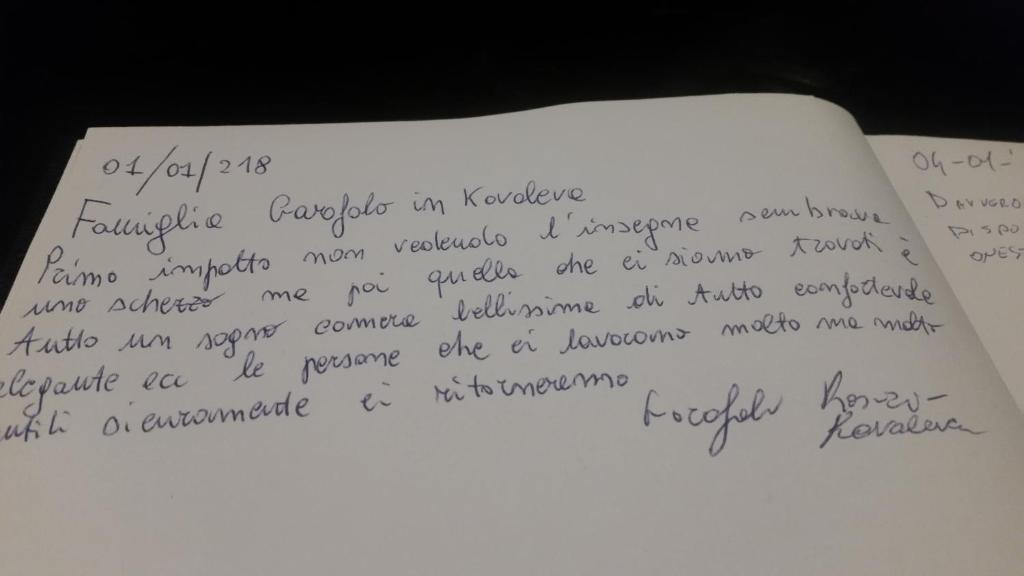 01/01/218
Famiglia Garofolo in Kovaleva
Primo impatto non vedendo l'insegne sembrava
uno scherzo ma poi quello che ci siamo trovati è
tutto un sogno camera bellissima di tutto confortevole
elegante ecc le persone che ci lavorano molto ma molto
ntili sicuramente ci ritorneremo
Garofolo
Kovaleva
04-01-
DAVVERO
DISPO
QUES